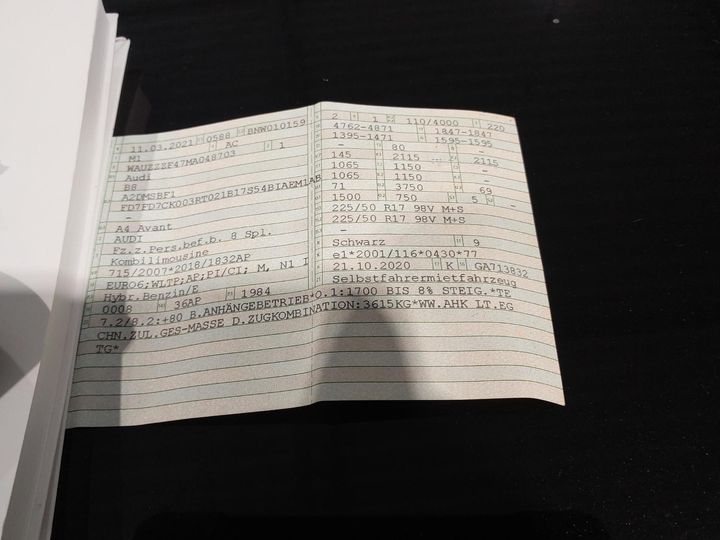 11.03.2021 0588 BNW010159
M1 AC 1
WAUZZZF47MA048703
Audi
B8
A2DMSBF1
FD7FD7CK003RT021B17S54BIAEM1AB
-
A4 Avant
AUDI
Fz.z.Pers.bef.b. 8 Spl.
Kombilimousine
715/2007*2018/1832AP
EURO6;WLTP;AP;PI/CI; M, N1 I
Hybr.Benzin/E
0008 36AP 1984
2 1 110/4000 220
4762-4871 1847-1847
1395-1471 1595-1595
- 80
145 2115 2115
1065 1150 -
1065 1150 -
71 3750 69
1500 750 5 -
225/50 R17 98V M+S
225/50 R17 98V M+S
-
-
Schwarz 9
e1*2001/116*0430*77
21.10.2020 K GA713832
Selbstfahrermietfahrzeug
7.2/8.2:+80 B.ANHÄNGEBETRIEB*O.1:1700 BIS 8% STEIG.*TE
CHN.ZUL.GES-MASSE D.ZUGKOMBINATION:3615KG*WW.AHK LT.EG
TG*